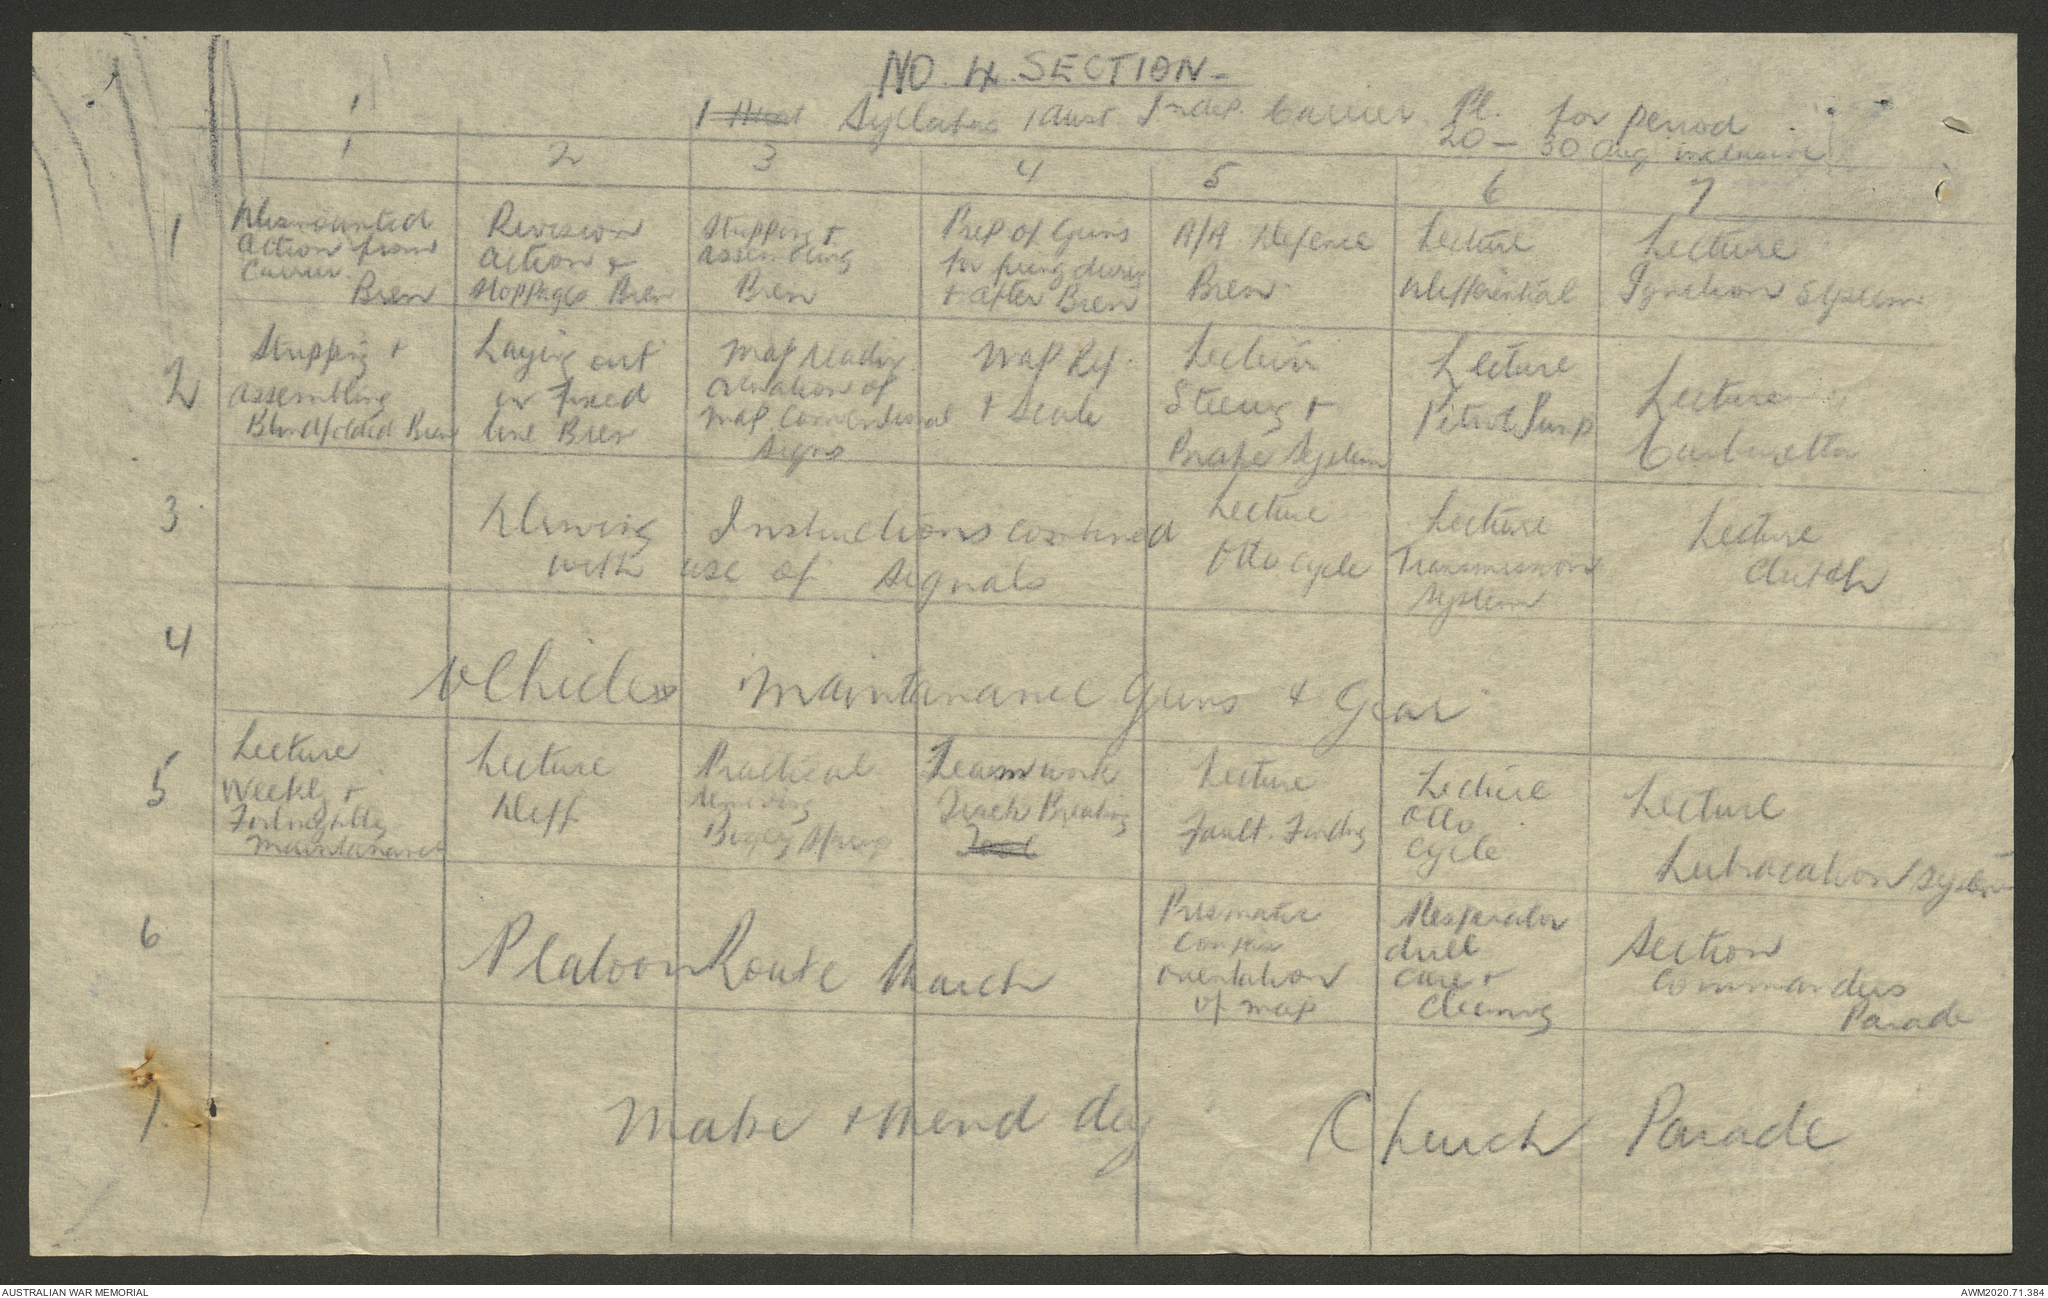 NO 4 SECTION -
1 Aust Syllabus 1 Aust Indep. Carrier Pl. for period
20 - 30 Aug inclusive
1 2 3 4 5 6 7
1
Dismounted
action from
Carrier
Bren
Revision
action &
stoppages Bren
Stripping +
assembling
Bren
Prep of Guns
for firing during
+ after Bren
A/A Defence
Bren
Lecture
Differential
Lecture
Ignition System
2
Stripping +
assembling
Blindfolded Bren
Laying out
on fixed
line Bren
Map reading
of
map conventional
signs
Map Ref.
+ Scale
Lecture
Steering +
Brake System
Lecture
Petrol Pump
Lecture
Carburetta
3
Driving Instructions combined
with use of signals
Lecture
Otto cycle
Lecture
Transmission
System
Lecture
clutch
4
Vehicles Maintanance Guns + Gear
5
Lecture
Weekly +
Fortnightly
Maintanance
Lecture
Diff
Practical
removing
Bogey Springs
Teamwork
Track Breaking
Lecture
Fault Finding
Lecture
Otto
cycle
Lecture
Lubracation System
6
Platoon Route March
Prismatic
compass
orientation
of map
Respirator
drill
care +
cleaning
Section
Commanders
Parade
7.
Make + Mend day
Church Parade
AUSTRALIAN WAR MEMORIAL
AWM2020.71.384